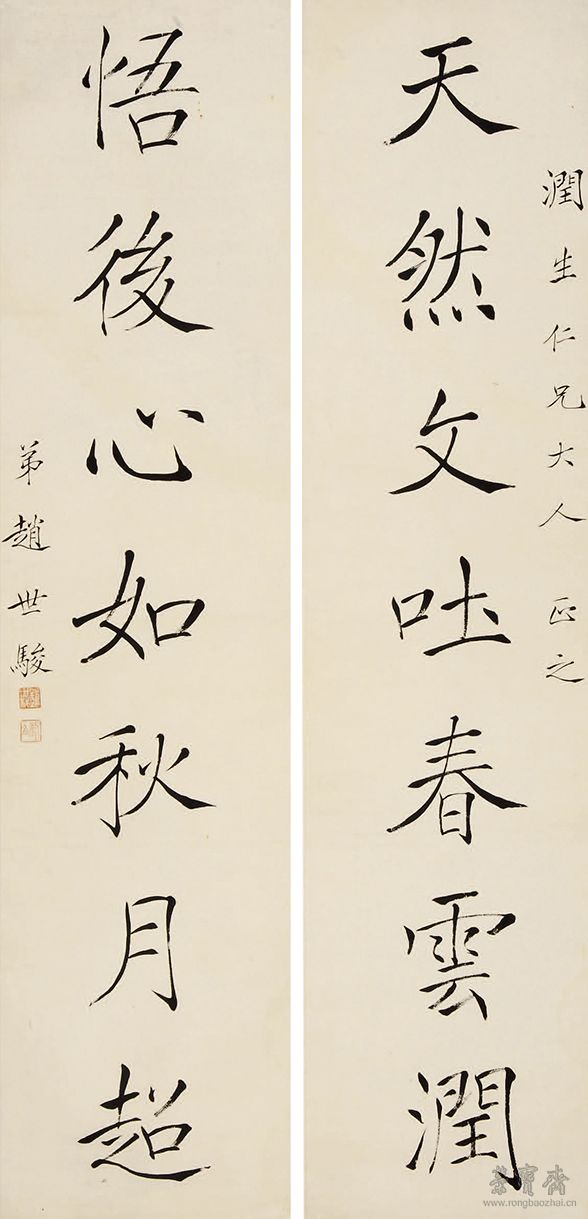 潤生仁兄大人正之
天然文吐春雲潤
悟後心如秋月超
弟趙世駿
榮寶齋
www.rongbaozhai.cn